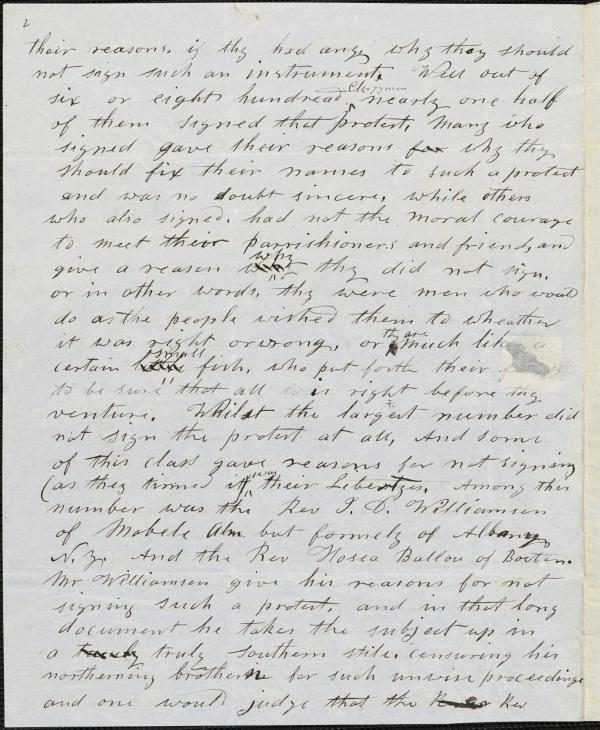 2
their reasons, if thy had any, why they should
not sign such an instrument. Well out of
six or eight hundread Clergymen nearly one half
of them signed that protest, Many who
signed gave their reasons for why thy
should fix their names to such a protest
and was no doubt sincere, while others
who also signed, had not the moral courage
to meet their parrishioners and friends, and
give a reason why thy did not sign,
or in other words, thy were men who would
do as the people wished them to wheather
it was right or wrong, or thy are much like a
certain small fish, who put forth their
to be sure that all is right before thy
venture. Whilst the largest number did
not sign the protest at all, And some
of this class gave reasons for not signing
(as they timed it) was their Libertys. Among this
number was the Rev I. D. Williamson
of Mobele Alm but formely of Albany
N.Y. And the Rev Hosea Ballou of Boston.
Mr Williamson give his reasons for not
signing such a protest, and in that long
document he takes the subject up in
a truly southern stile, censuring his
northerning brothern for such unwise proceedings
and one would judge that the Rev